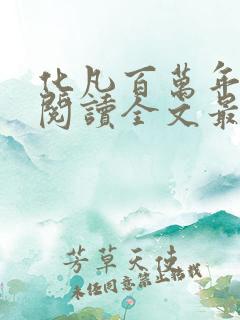 化凡百萬年
閱讀全文最
芳草天使
未经同意禁止转载